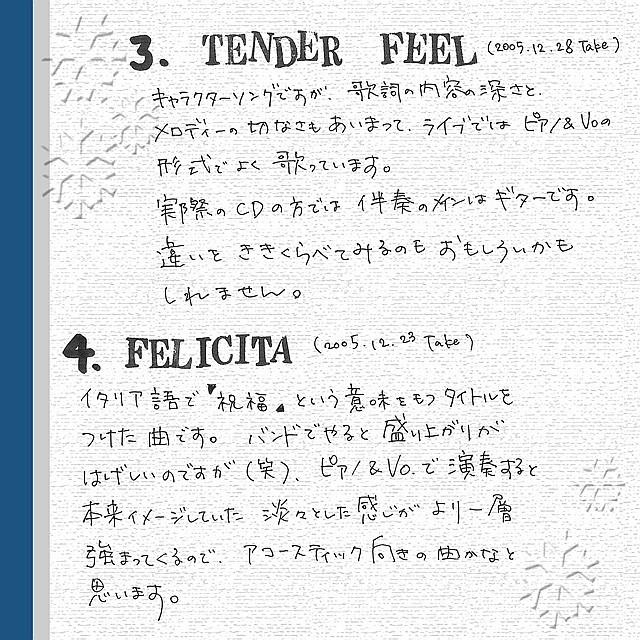 3. TENDER FEEL (2005.12.28 Take)
キャラクターソングですが、歌詞の内容の深さと、
メロディーの切なさもあいまって、ライブではピアノ&Voの
形式でよく歌っています。
実際のCDの方では伴奏のメインはギターです。
違いをききくらべてみるのもおもしろいかも
しれません。
4. FELICITA (2005.12.23 Take)
イタリア語で『祝福』という意味をもつタイトルを
つけた曲です。バンドでやると盛り上がりが
はげしいのですが(笑)、ピアノ&Vo.で演奏すると
本来イメージしていた淡々とした感じがより一層
強まってくるので、アコースティック向きの曲かなと
思います。